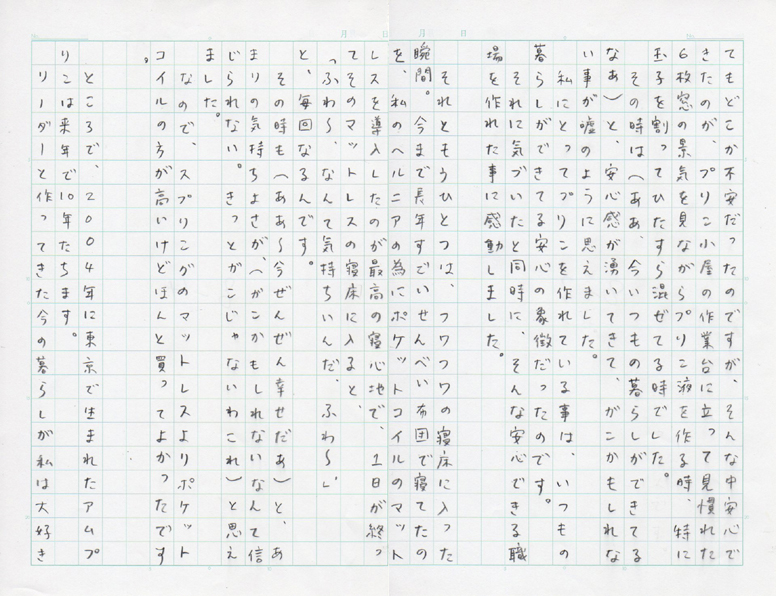 月　日　月　日
てもどこか不安だったのですが、そんな中安心で
きたのが、プリン小屋の作業台に立って見慣れた
6枚窓の景気を見ながらプリン液を作る時、特に
玉子を割ってひたすら混ぜてる時でした。
その時は（ああ、今いつもの暮らしができてる
なあ）と、安心感が湧いてきて、がんかもしれな
い事が嘘のように思えました。
私にとってプリンを作れている事は、いつもの
暮らしができてる安心の象徴だったのです。
それに気づいたと同時に、そんな安心できる職
場を作れた事に感動しました。
それともうひとつは、フワフワの寝床に入った
瞬間。今まで長年すでいせんべい布団で寝てたの
を、私のヘルニアの為にポケットコイルのマット
レスを導入したのが最高の寝心地で、1日が終っ
てそのマットレスの寝床に入ると、
「ふわ〜、なんて気持ちいんだ、ふわ〜」
と、毎回なるんです。
その時も（ああ〜今ぜんぜん幸せだあ）と、あ
まりの気持ちよさが、（がんかもしれないなんて信
じられない。きっとがんじゃないわこれ）と思え
ました。
なので、スプリングのマットレスよりポケット
コイルの方が高いけどほんと買ってよかったです
。
ところで、2004年に東京で生まれたアムプ
リンは来年で10年たちます。
リーダーと作ってきた今の暮らしが私は大好き